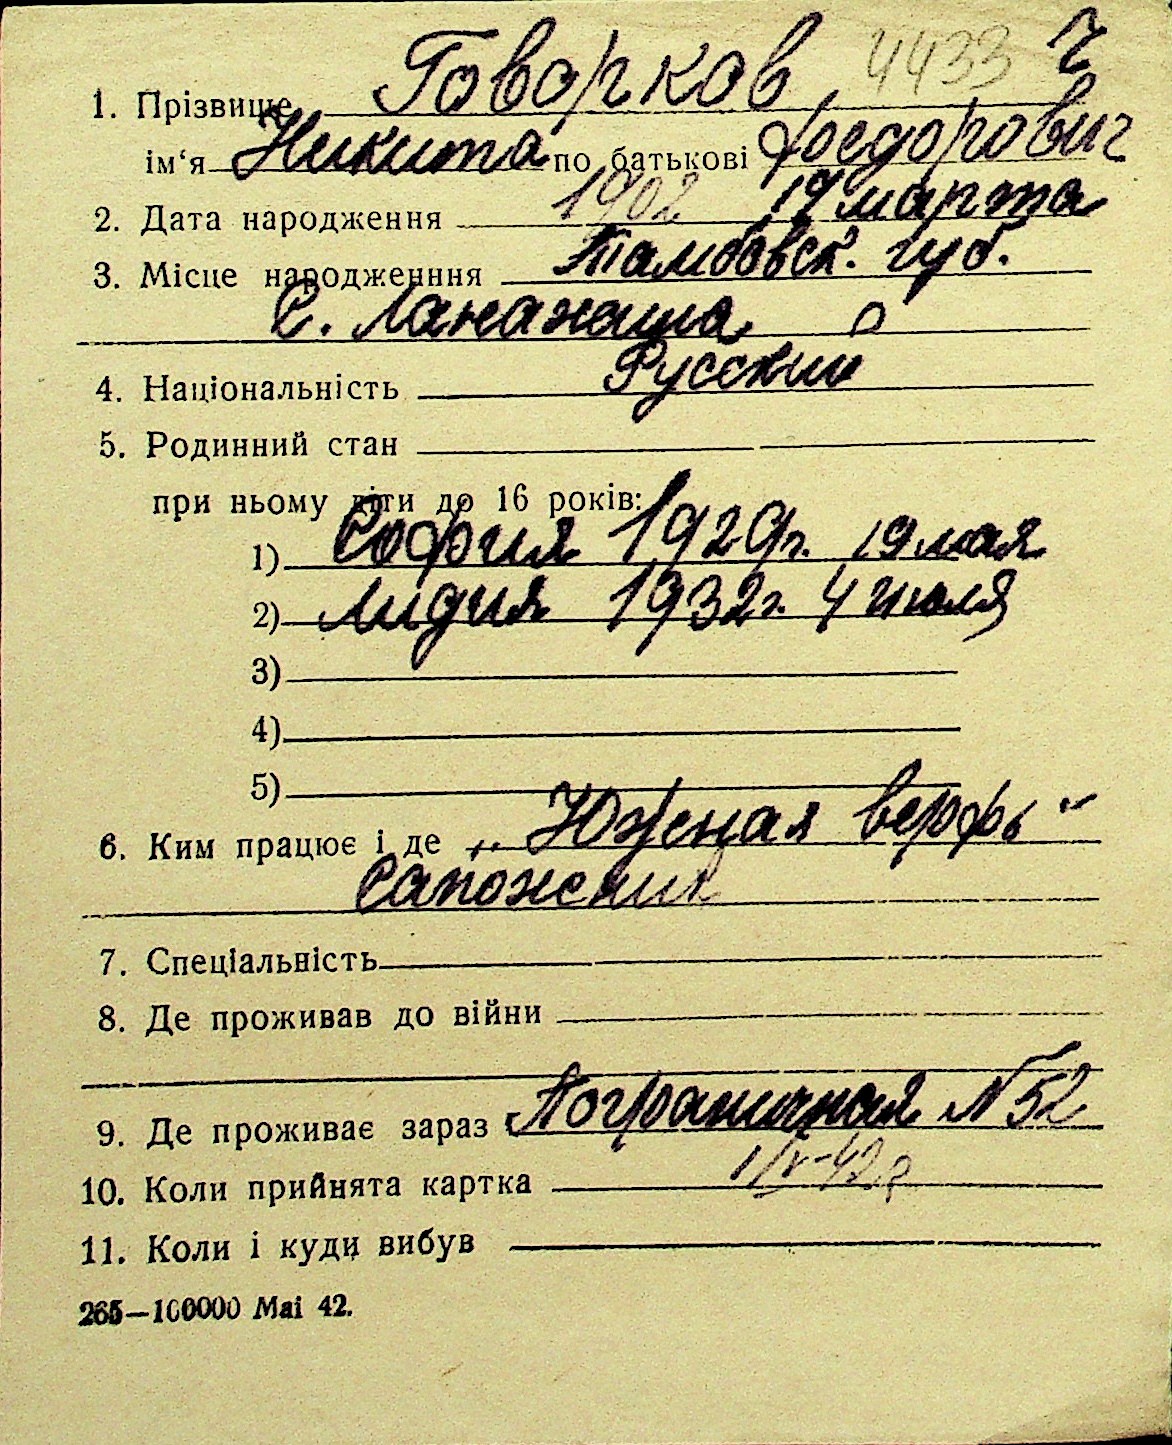 4433 г
1. Прізвище Говорков
ім‘я Никита по батькові Федорович
2. Дата народження 1902 19 марта
3. Місце народженння Тамбовск. губ.
С.
4. Національність Русский
5. Родинний стан
при ньому діти до 16 років:
1) София 1929г. 19 мая
2) Лидия 1932г. 4 июля
3)
4)
5)
6. Ким працює і де „Южная верфь“
Сапожник
7. Спеціальність
8. Де проживав до війни
9. Де проживає зараз Пограничная N 52
10. Коли прийнята картка 1/V-42г
11. Коли і куди вибув
265—100000 Mai 42.